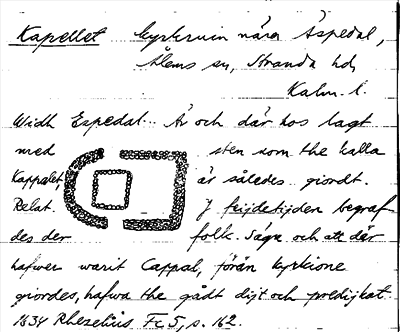 Kapellet kyrkoruin nära Äspedal,
Ålems sn, Stranda hd,
Kalm. l.
Widh Espedal... Är och där hos lagt
med sten som the kalla
Kappalet är således giordt.
Relat. J feijdetijden begraf-
des der folk. Säga och att där
hafwer warit Cappal, förän kyrkione
giordes, hafwa the gådt dijt och predijkat.
1634 Rhezelius Fc 5, s. 162.